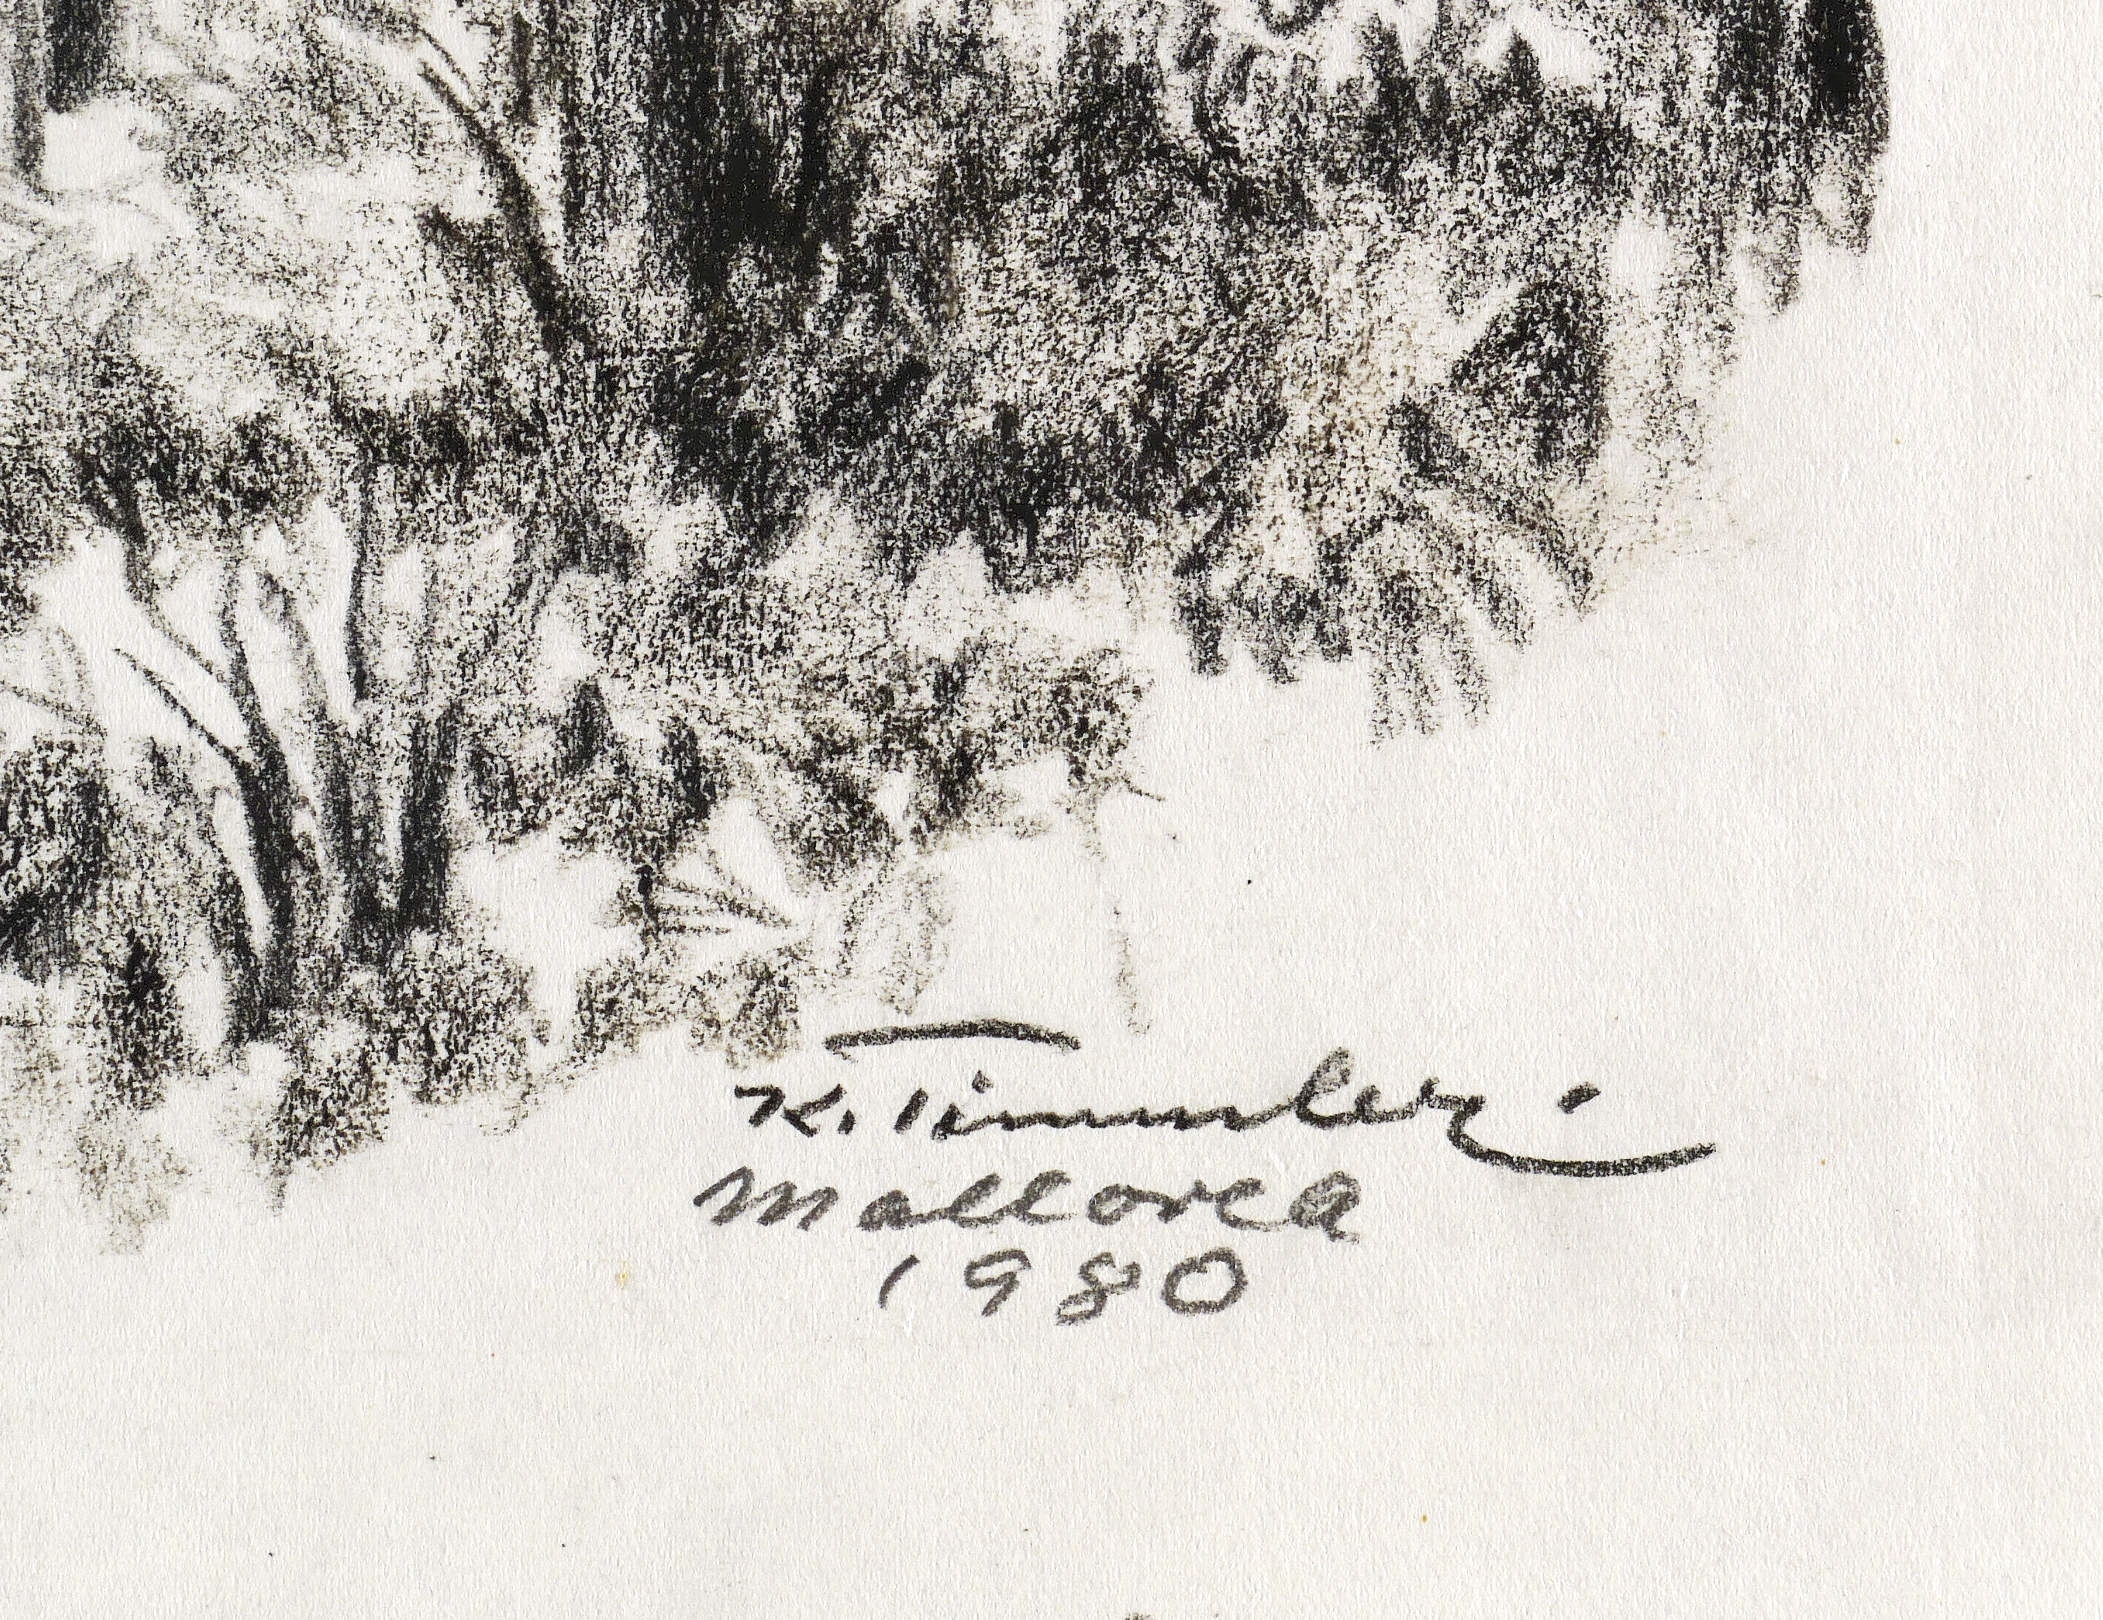 K. Timmler.
Mallorca
1980